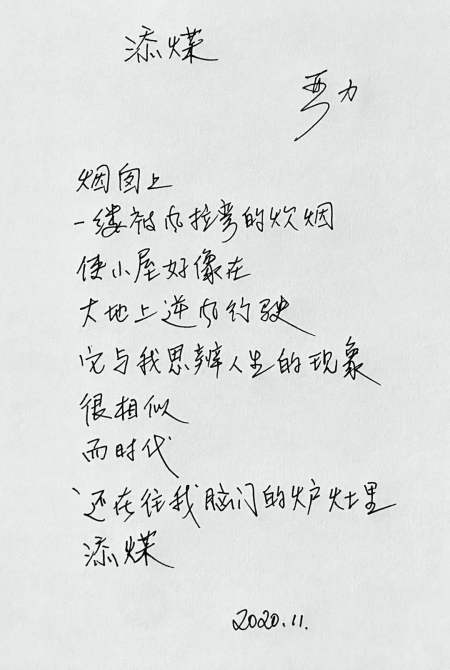 添煤
严力
烟囱上
一缕被风拉弯的炊烟
使小屋好像在
大地上逆风行驶
它与我思辨人生的现象
很相似
而时代
还在往我脑门的炉灶里
添煤
2020.11.